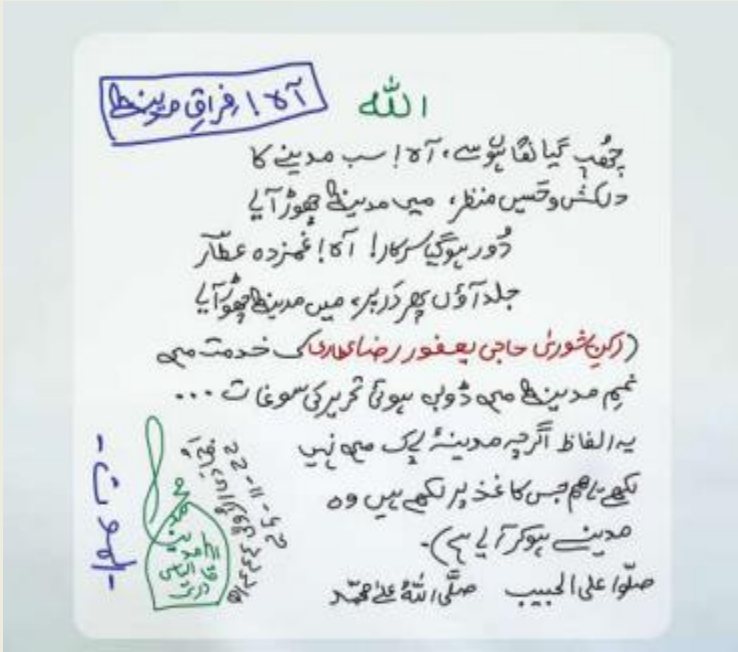 اللہ
آہ! فراقِ مدینہ
چھپ گیا نگاہوں سے، آہ! سب مدینے کا
دلکش و حسیں منظر، میں مدینہ چھوڑ آیا
دُور ہو گیا سرکار! آہ! غمزدہ عطّارؔ
جلد آؤں پھر دَر پر، میں مدینہ چھوڑ آیا
(رکنِ شوریٰ حاجی یعفور رضا عطاری کی خدمت میں
غمِ مدینہ میں ڈوبی ہوئی تحریر کی سوغات ...
یہ الفاظ اگرچہ مدینۂ پاک میں نہیں
لکھے تاہم جس کاغذ پر لکھے ہیں وہ
مدینے سے ہو کر آیا ہے)۔
صلّوا علی الحبیب صلَّی اللہُ علیٰ محمّد
۔الموت۔